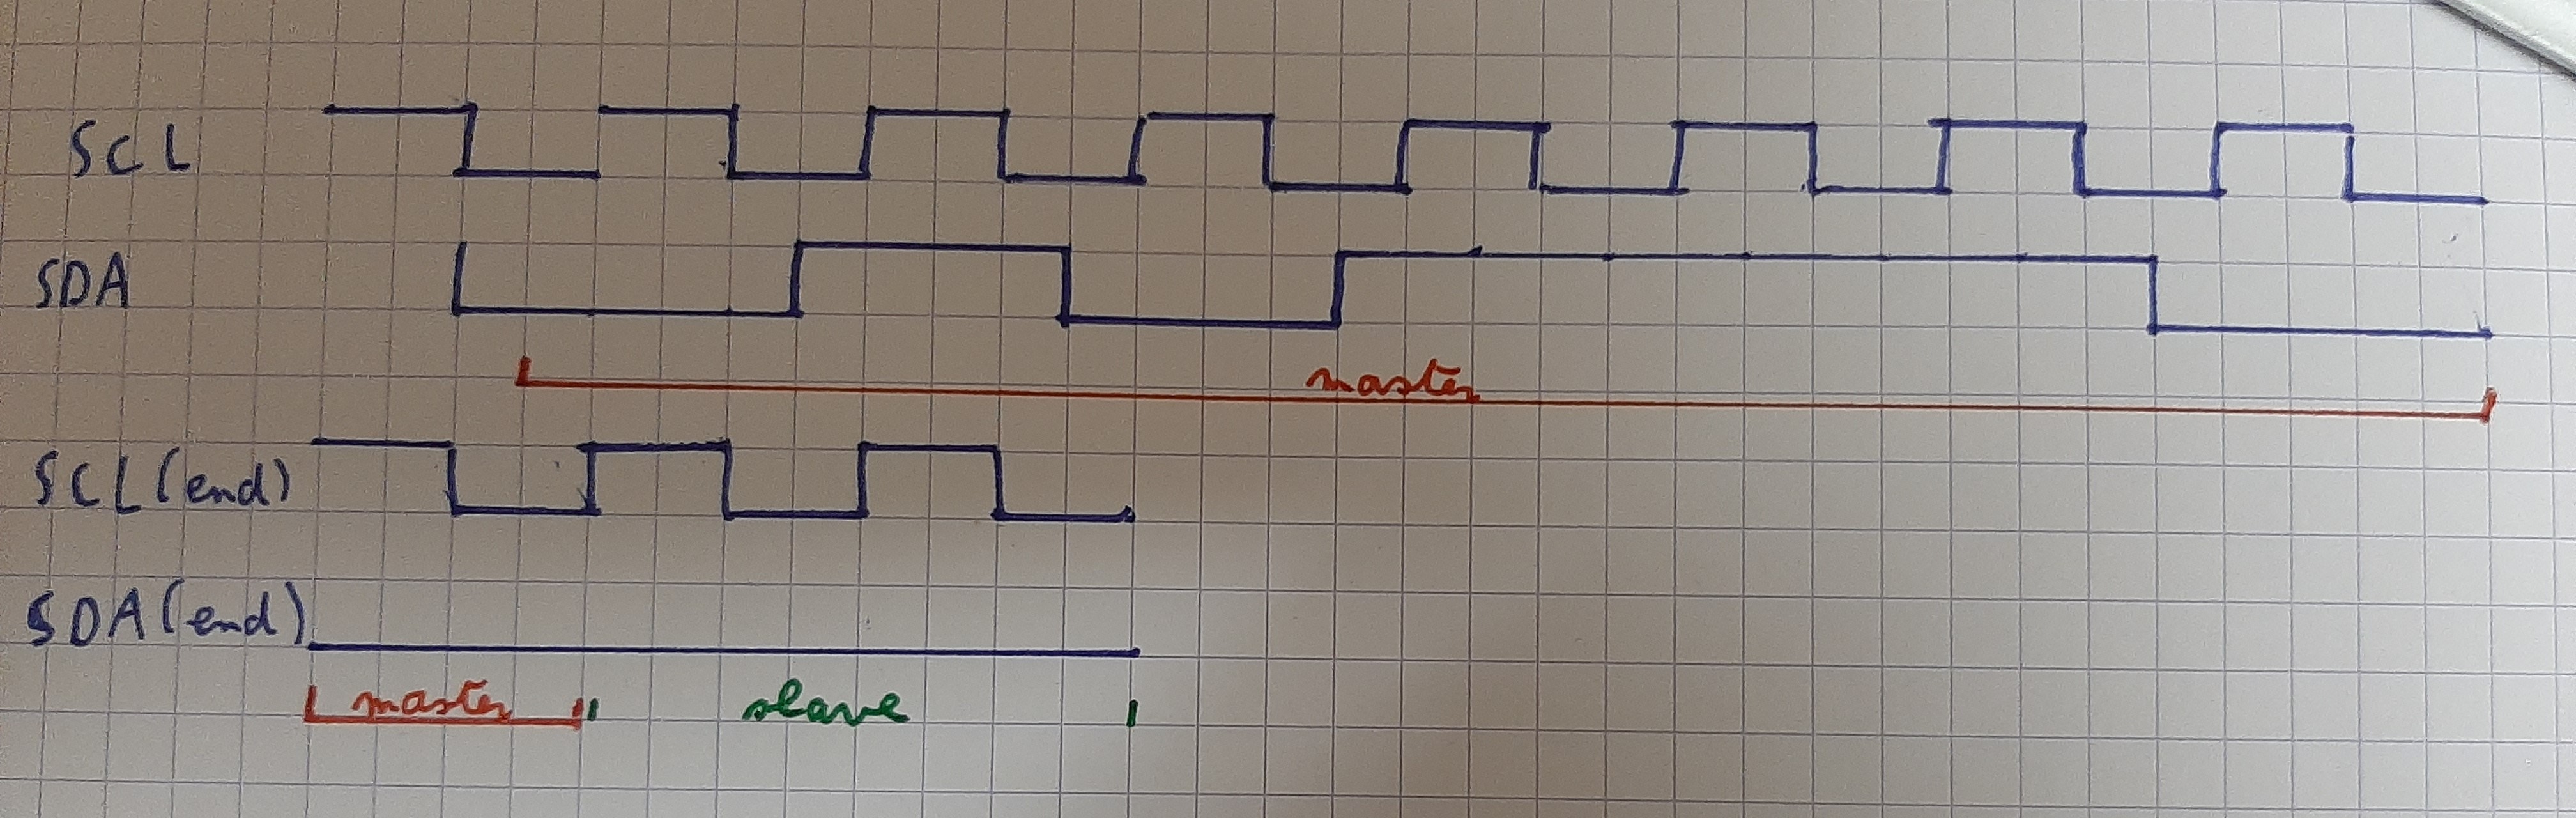 SCL
SDA
master
SCL (end)
SDA (end)
master slave